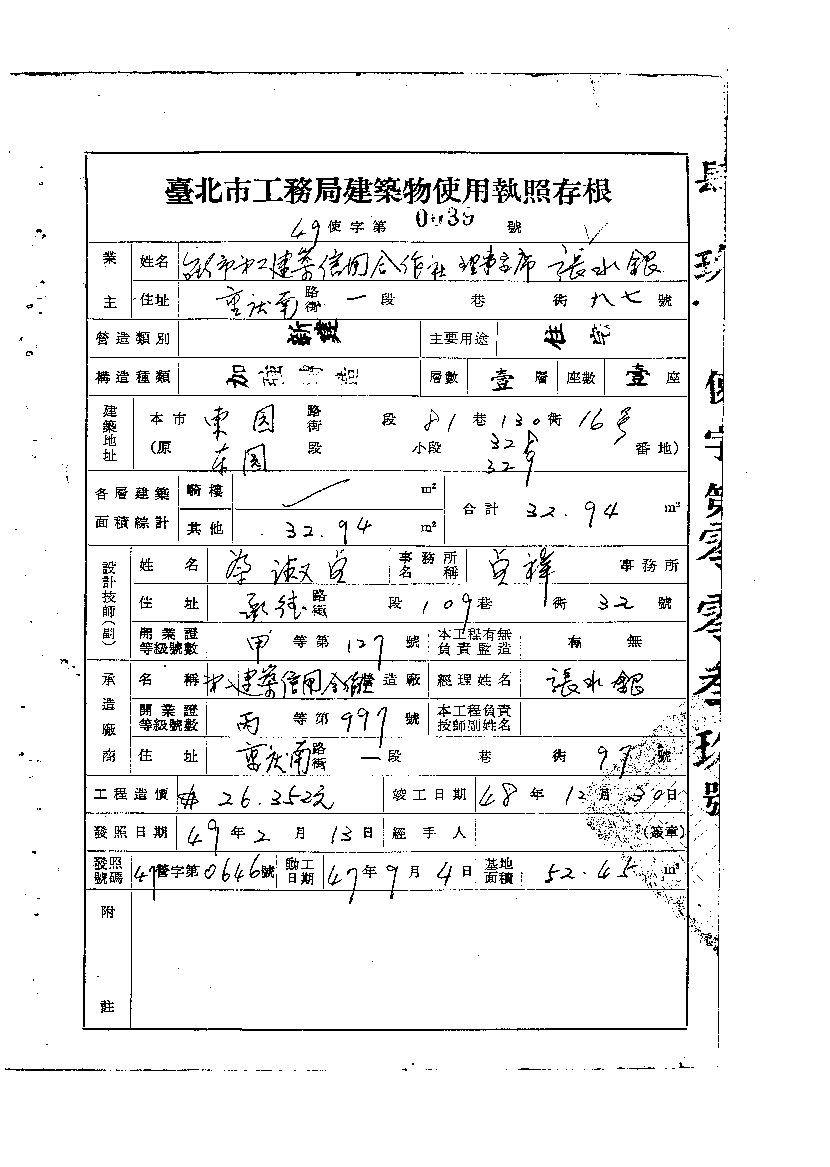 臺北市工務局建築物使用執照存根
49使字第 0039 號
業主 姓名 建築信用合作社理事主席 張水銀
住址 重慶南 路街 一段 巷 街 九七 號
營造類別 新建 主要用途 住宅
構造種類 加強磚造 層數 壹 層 座數 壹 座
建築地址 本市 東園 路街 段 81 巷 130 街 16号
(原 東園 段 小段 番地)
各層建築面積綜計 騎樓 m² 合計 32.94 m²
其他 32.94 m²
設計技師(副) 姓名 蔡淑貞 事務所名稱 貞祥 事務所
住址 承德 路街 段 109 巷 街 32 號
開業證等級號數 甲 等第 127 號 本工程有無負責監造 有 無
承造廠商 名稱 建築信用合作社 營造廠 經理姓名 張水銀
開業證等級號數 丙 等第 997 號 本工程負責技師別姓名
住址 重慶南 路街 一段 巷 街 97 號
工程造價 26.352元 竣工日期 48 年 12 月 30 日
發照日期 49 年 2 月 13 日 經手人 (簽章)
發照號碼 47 營字第 0646 號 動工日期 47 年 9 月 4 日 基地面積 52.45 m²
附註
肆玖 使字第零零叁玖號